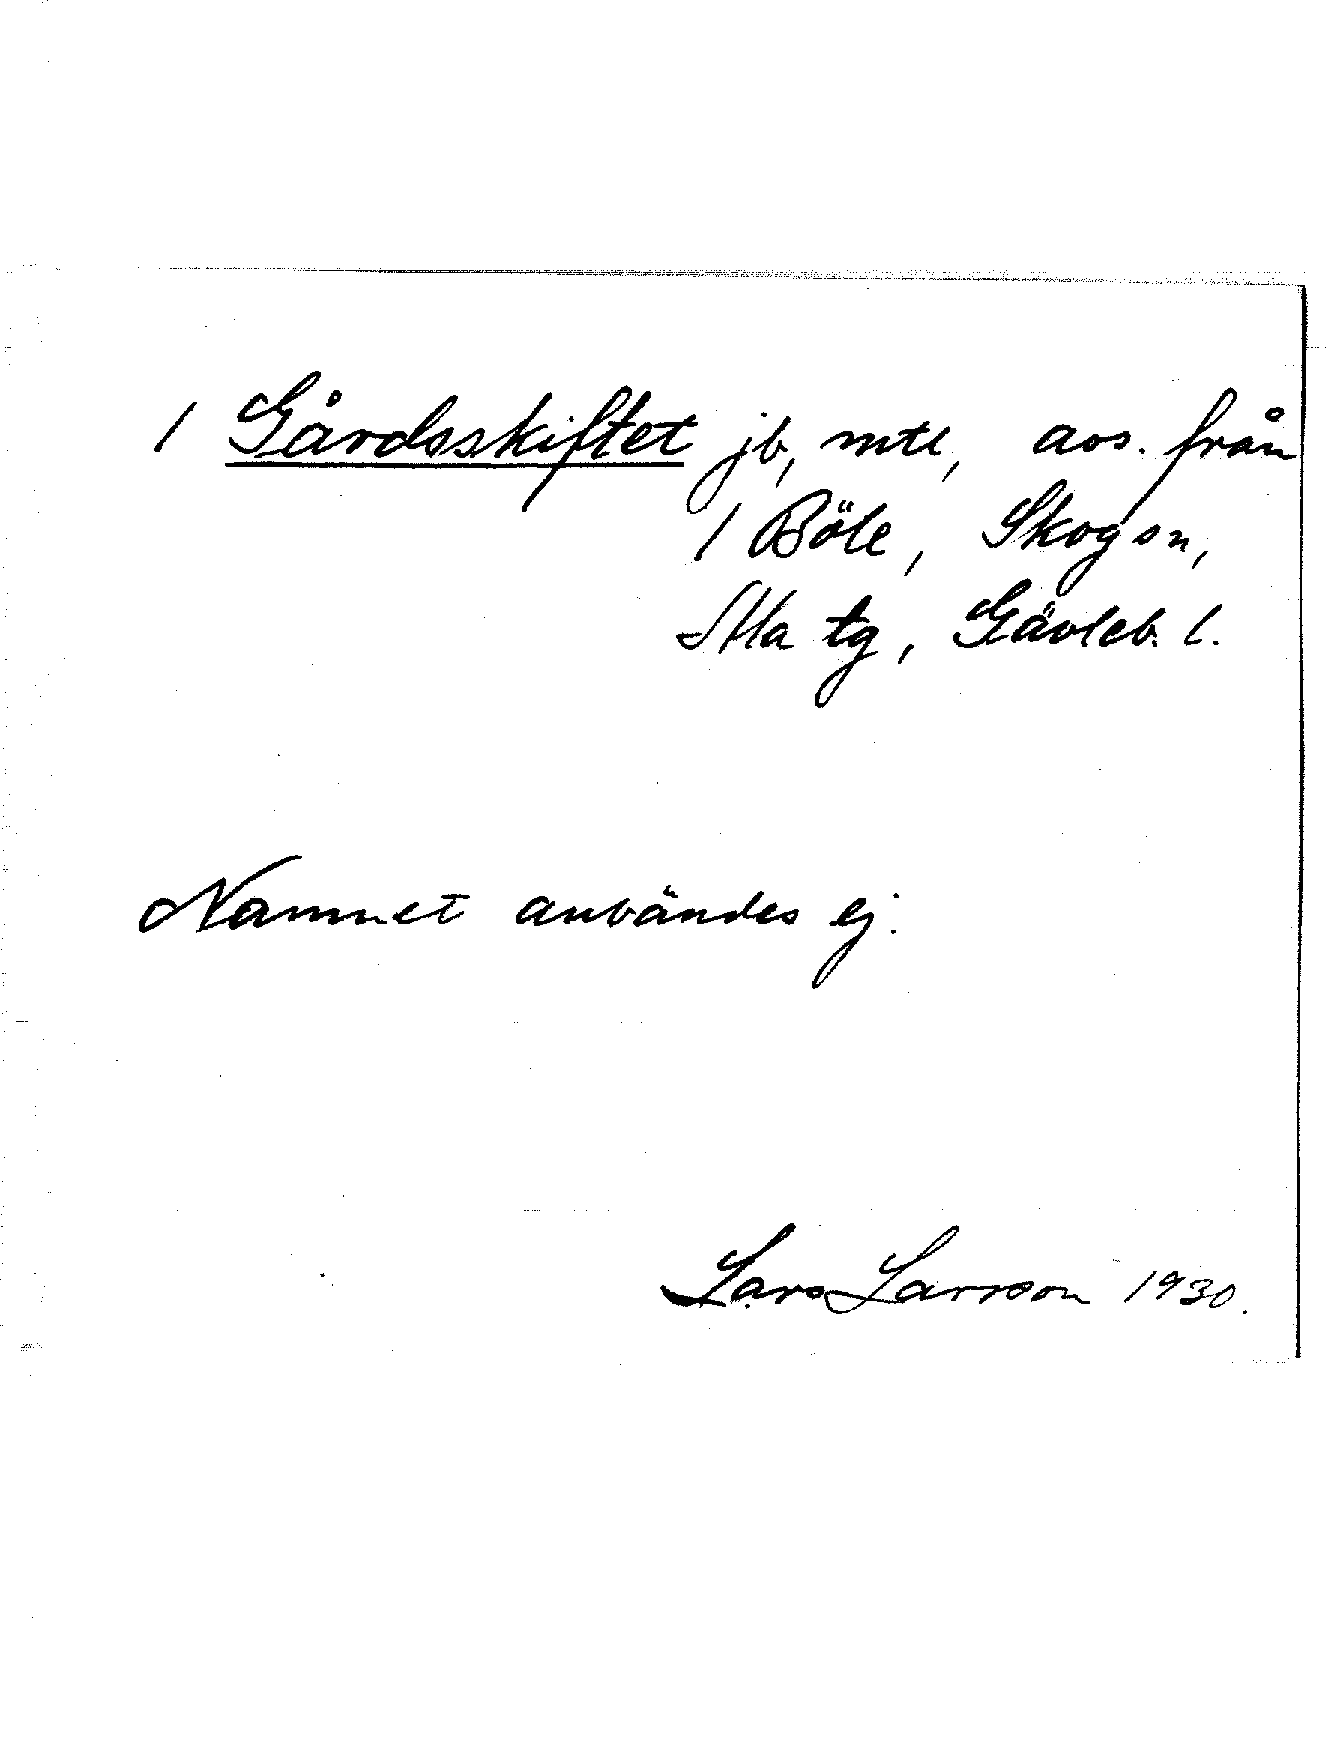 1 Gårdsskiftet jb, mtl, avs. från
1 Böle, Skog sn,
Ala tg, Gävleb. l.
Namnet användes ej.
Lars Larsson 1930.